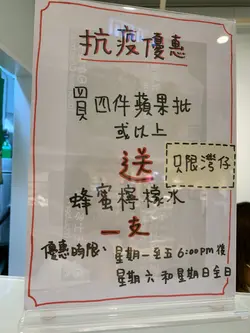 抗疫優惠
買四件蘋果批
或以上
送
只限灣仔
蜂蜜檸檬水
一支
優惠時限、星期一至五 6:00pm 後
星期六和星期日全日